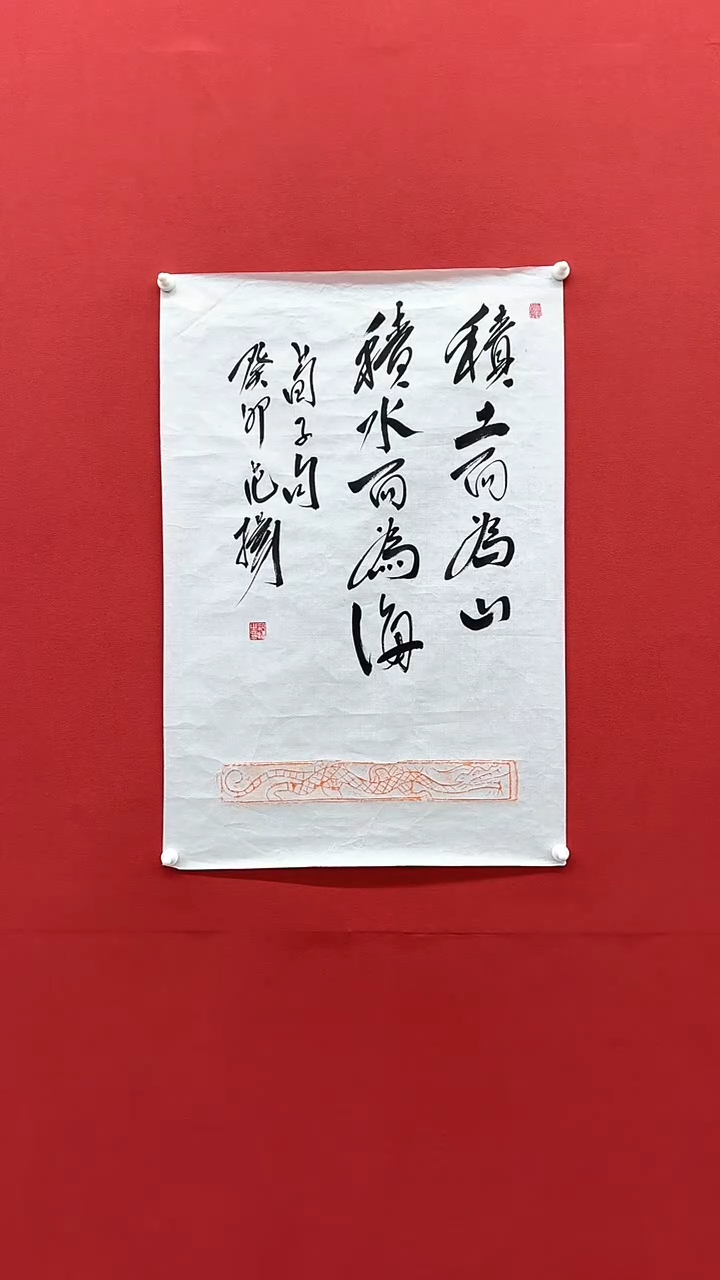 積土而為山
積水而為海
荀子句
癸卯范揚